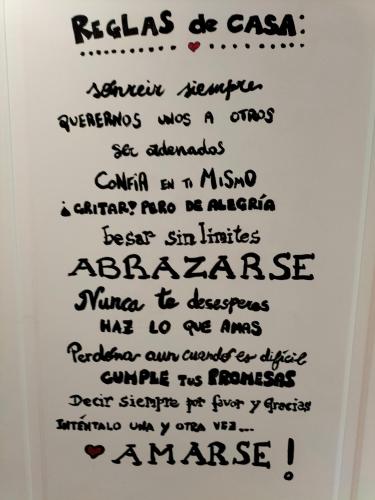 REGLAS de CASA:
sonreir siempre
QUERERNOS UNOS A OTROS
ser ordenados
CONFIA EN TI MISMO
¿GRITAR? PERO DE ALEGRÍA
besar sin límites
ABRAZARSE
Nunca te desesperes
HAZ LO QUE AMAS
Perdona aun cuando es difícil
CUMPLE TUS PROMESAS
Decir siempre por favor y gracias
INTÉNTALO UNA Y OTRA VEZ...
AMARSE!